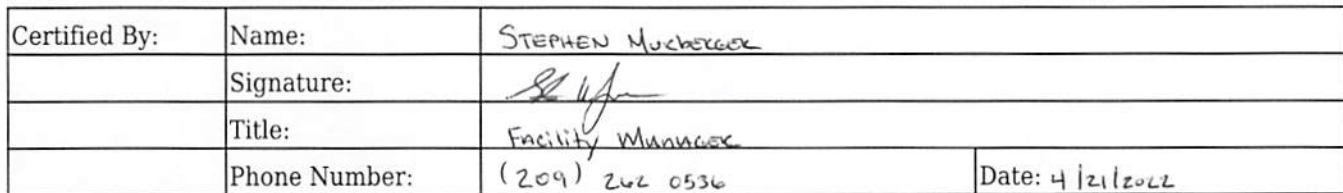 Certified By: Name: STEPHEN
Signature:
Title: Facility Manager
Phone Number: (209) 262 0536 Date: 4/21/2022